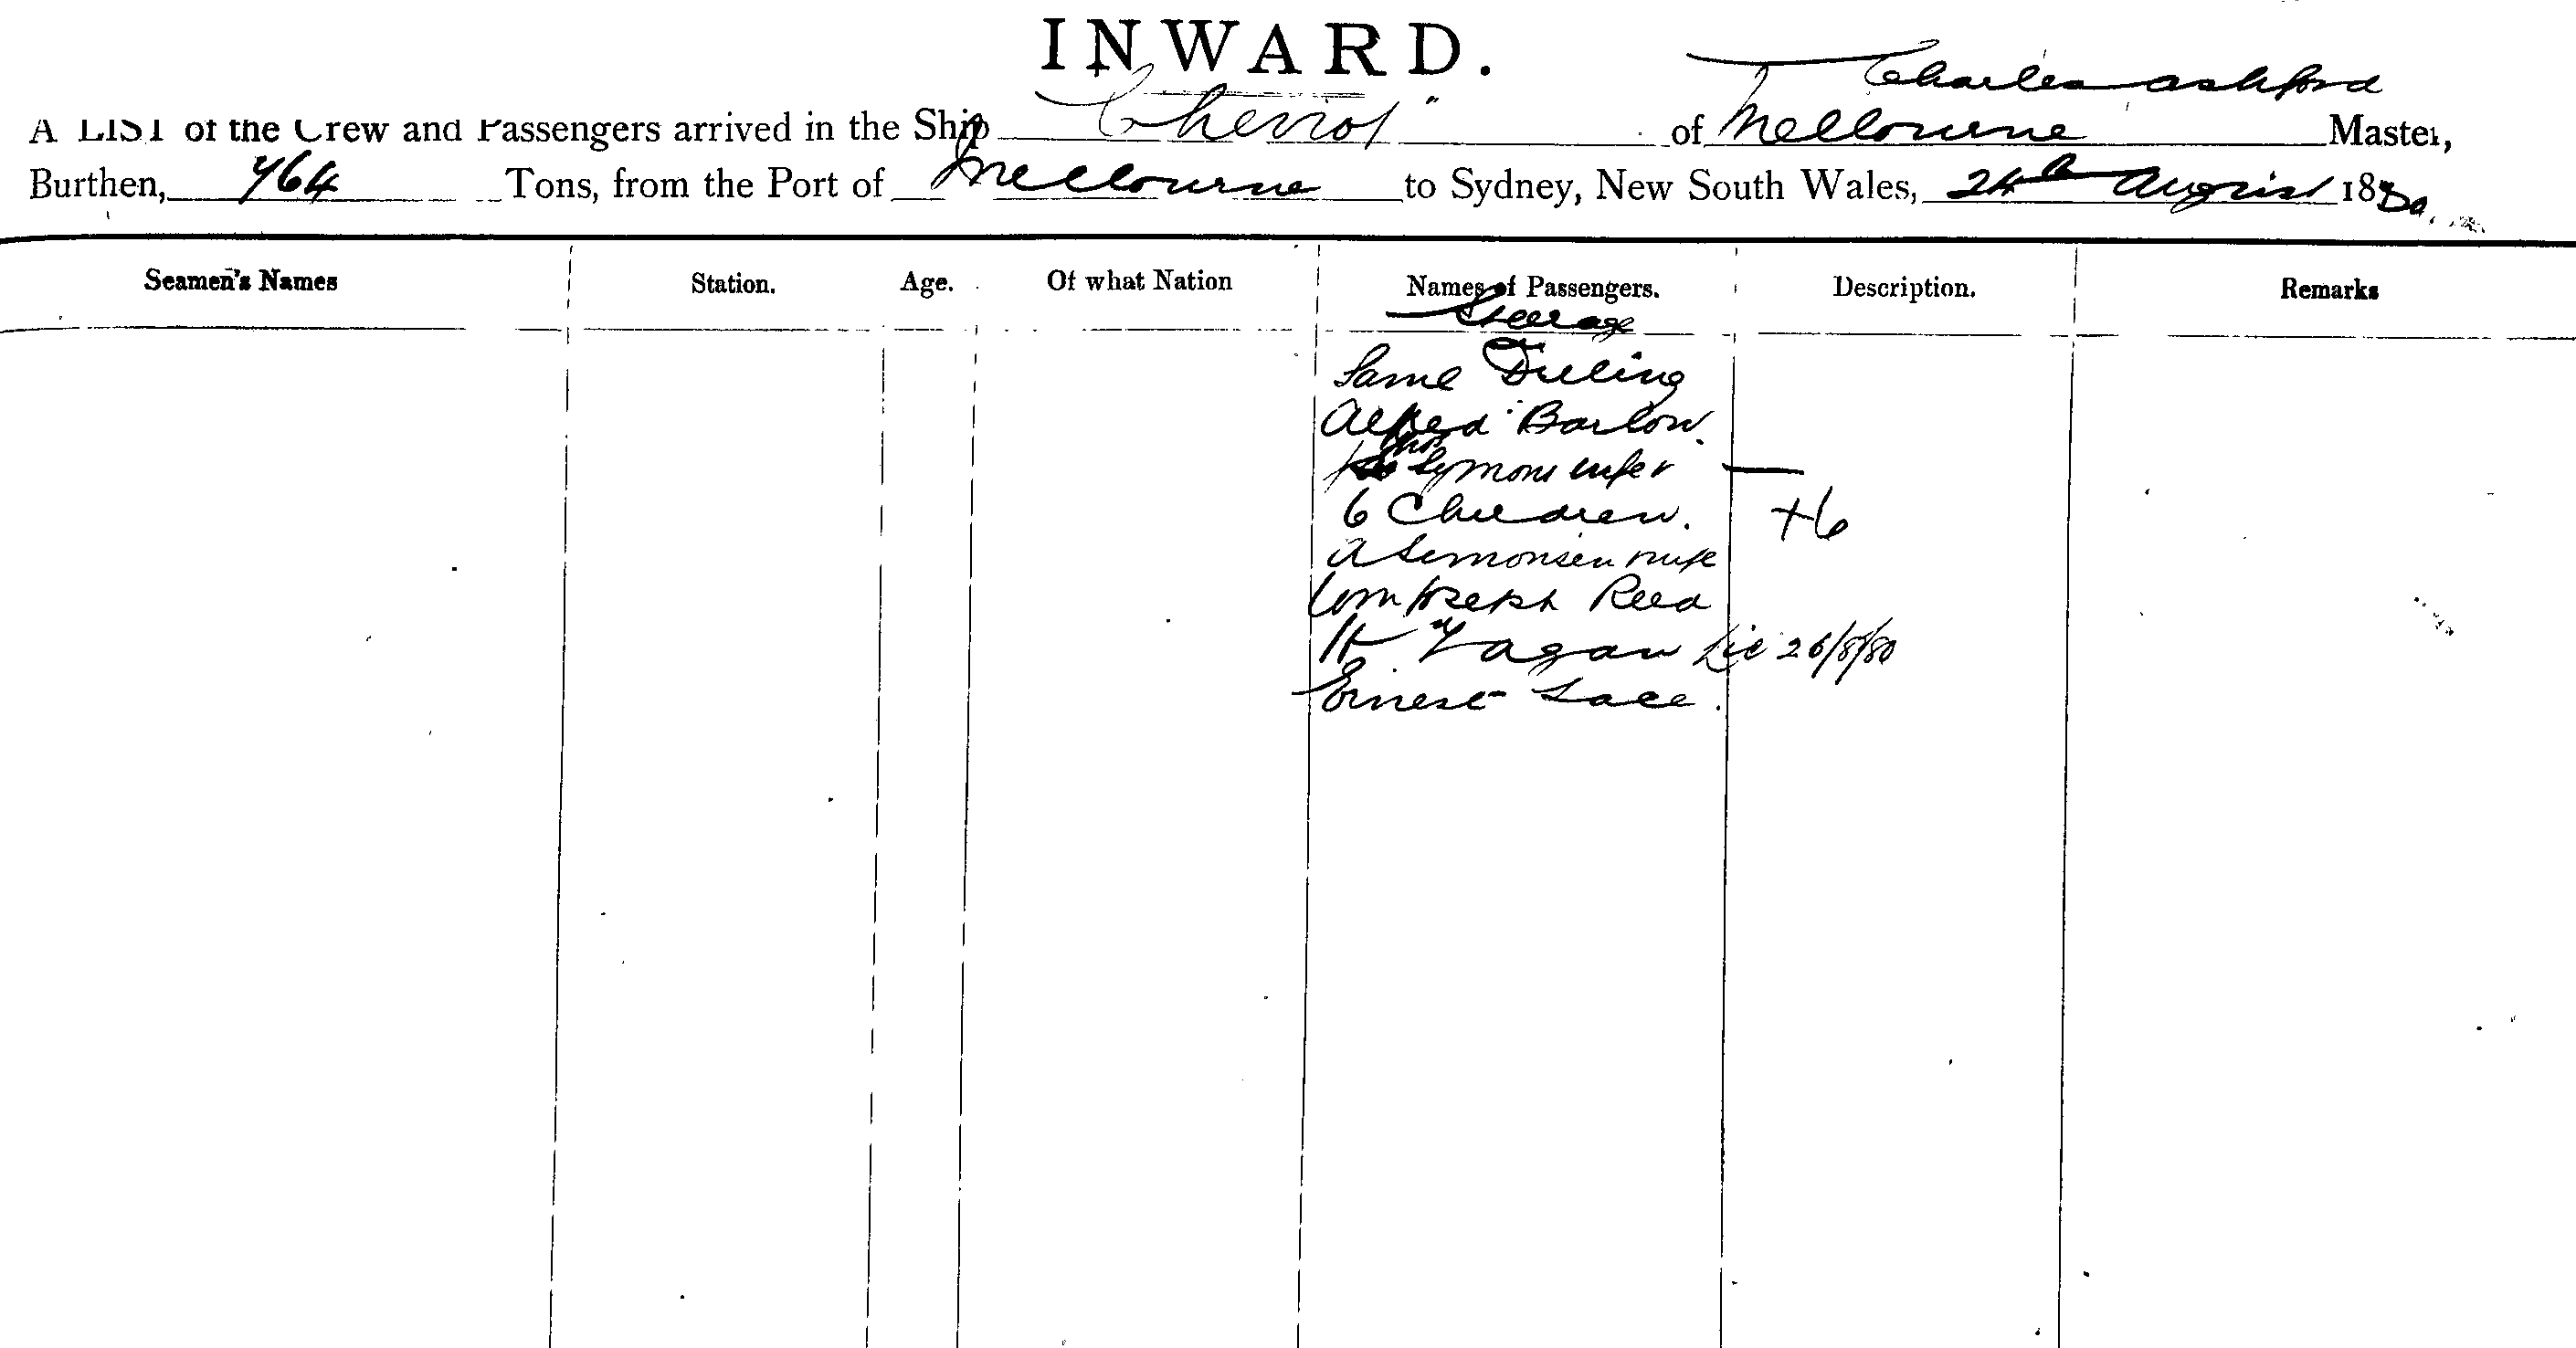 INWARD.
Charles Ashford
A LIST of the Crew and Passengers arrived in the Ship "Cheviot" of Melbourne Master,
Burthen, 764 Tons, from the Port of Melbourne to Sydney, New South Wales, 24th August 1880.
Seamen's Names Station. Age. Of what Nation Names of Passengers. Description. Remarks
Steerage
Alfred Barlow.
Thos Symons wife &
6 Children. +6
A Simonsen wife
Wm Joseph Reed
H Fagan Lic 26/8/80
Ernest Lace.